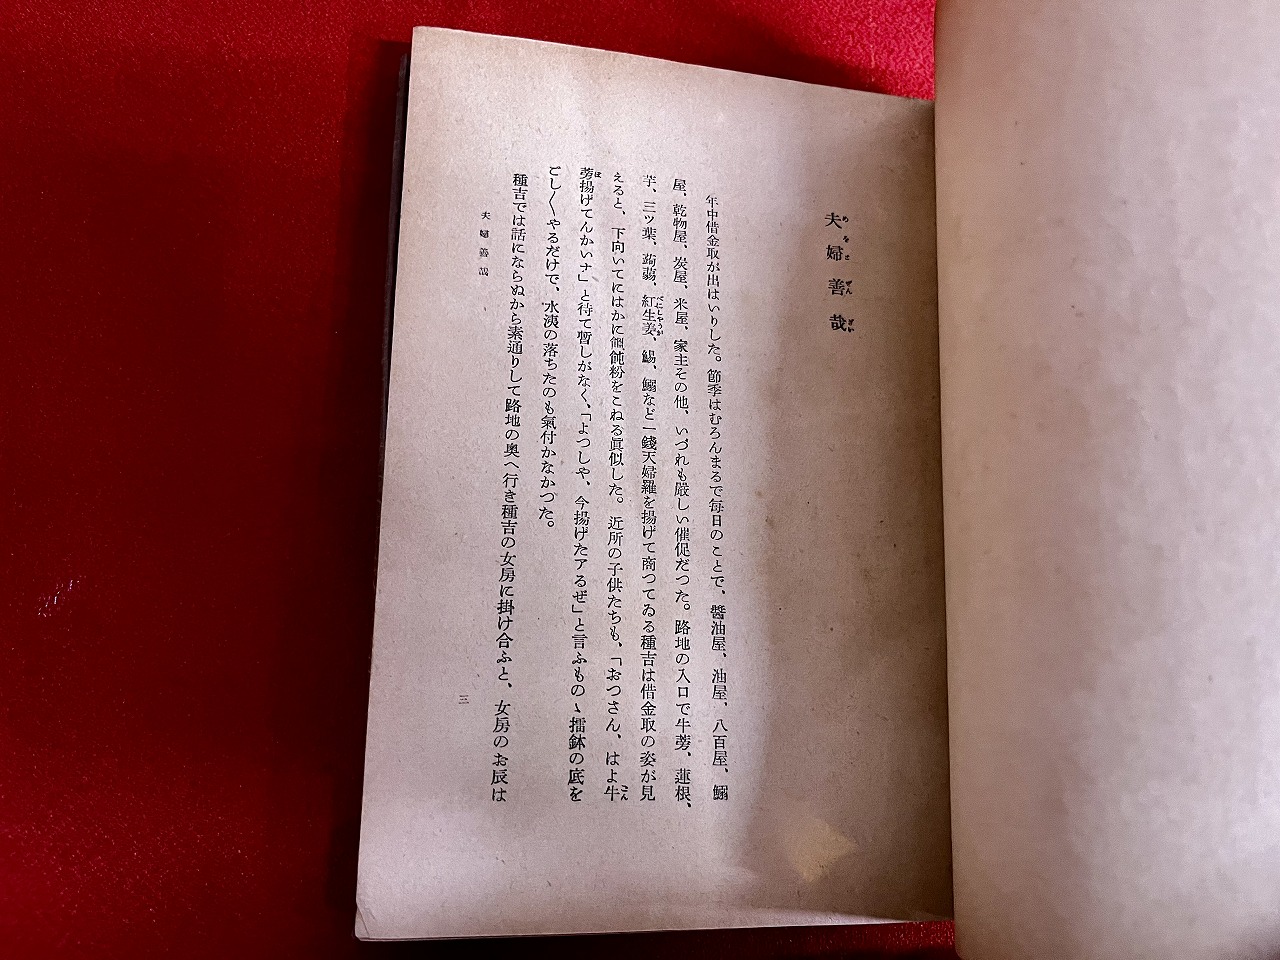 夫婦善哉
めをとぜんざい
年中借金取が出はいりした。節季はむろんまるで毎日のことで、醬油屋、油屋、八百屋、鰯
屋、乾物屋、炭屋、米屋、家主その他、いづれも厳しい催促だつた。路地の入口で牛蒡、蓮根、
芋、三ツ葉、蒟蒻、紅生姜、鯣、鰯など一錢天婦羅を揚げて商つてゐる種吉は借金取の姿が見
べにしやうが
えると、下向いてにはかに饂飩粉をこねる眞似した。近所の子供たちも、「おつさん、はよ牛
ごん
蒡揚げてんかいナ」と待て暫しがなく、「よつしや、今揚げたアるぜ」と言ふものゝ擂鉢の底を
ぼ
ごし〱やるだけで、水洟の落ちたのも氣付かなかつた。
種吉では話にならぬから素通りして路地の奥へ行き種吉の女房に掛け合ふと、女房のお辰は
夫婦善哉
三